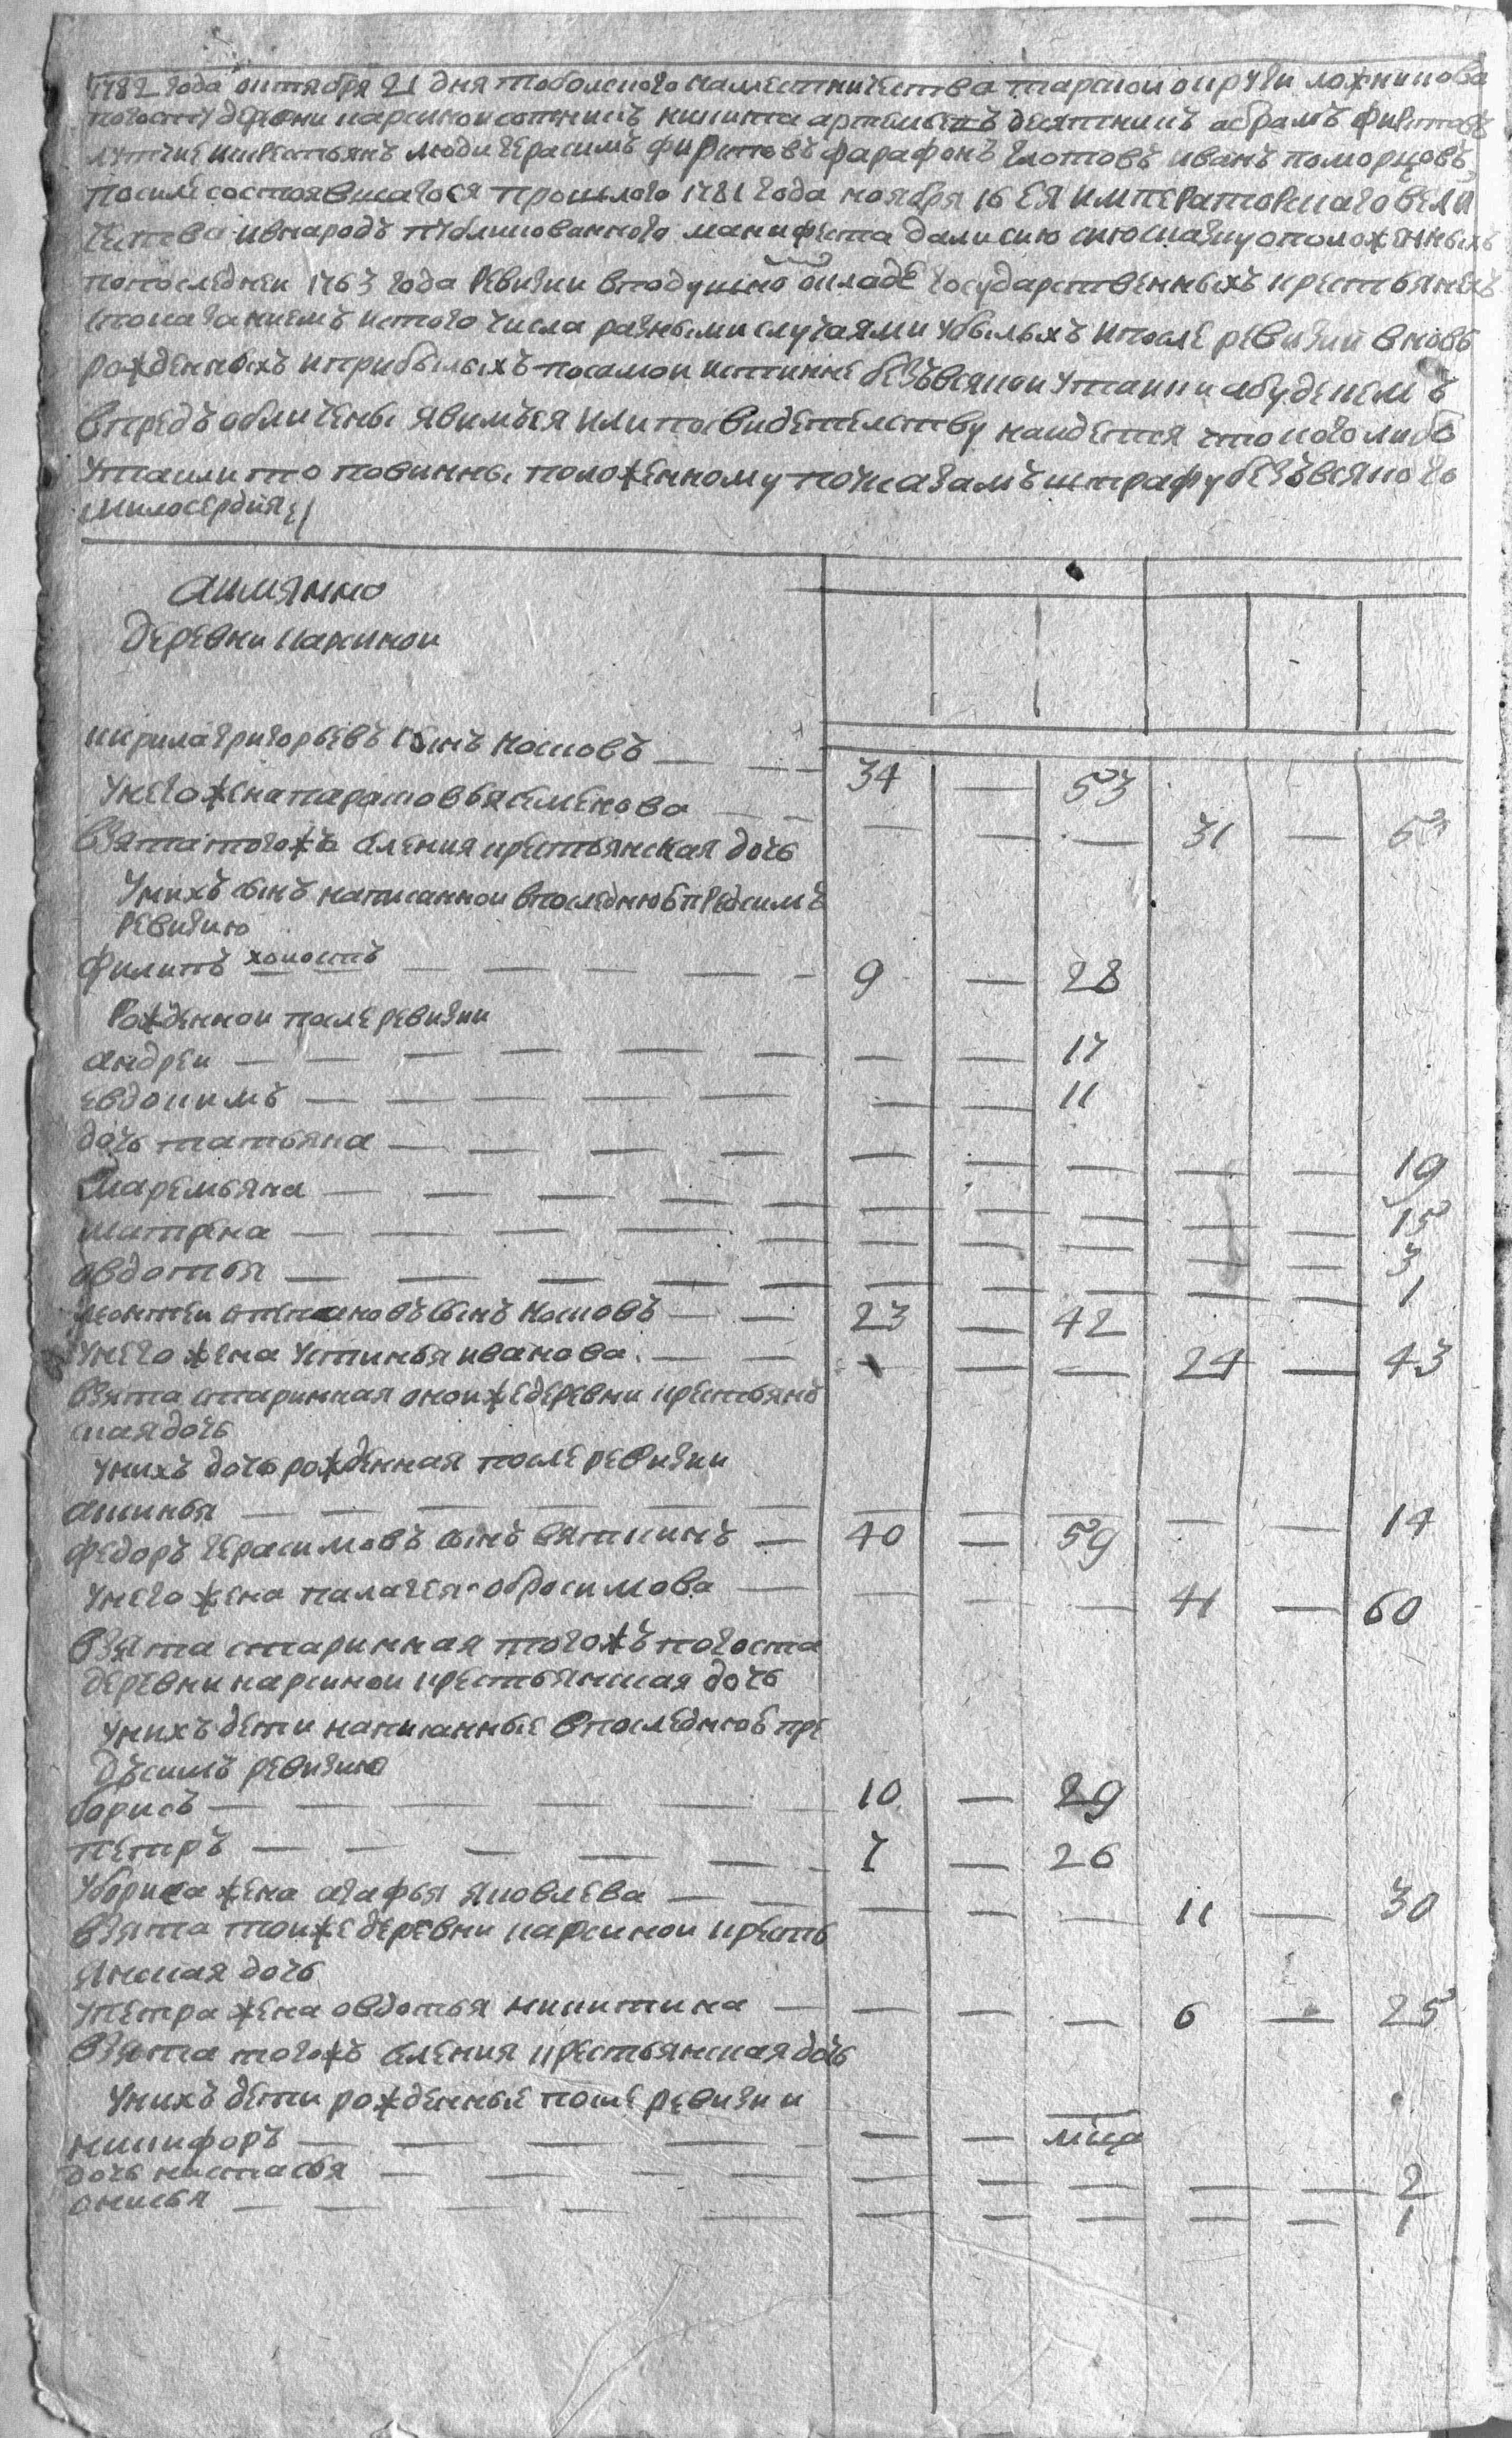 1782 года октября 21 дня тоболского наместничества тарской округи ложникова
погосту дерени карсиной сотникъ никита артемьевъ десятникъ абрамъ фирстовъ
лутчие искрестьянъ люди герасимъ фирстовъ фарафонъ глотовъ иванъ поморцовъ
посиле состоявшагося прошлого 1781 года ноября 16 ЕЯ императорскаго вели
чества ивнародъ публикованного манифеста дали сию скоскаску оположенныхъ
попоследнеи 1763 года ревизии вподушно окладе государственныхъ крестьянехъ
споказаниемъ истого числа разными случаями убылыхъ ипосле ревизии вновь
рожденныхъ иприбылыхъ посамои истинне безъвсякои утаики абудекемъ
впредъ обличены явимъся илипосвидетелству наидется чтокоголибо
утаили то повинны положенному поуказамъ штрафу безъвсякого
милосердия
аимянно
деревни карсинои
кирила григорьевъ сынъ носковъ — 34 — 53
унего жена парасковья семенова — — — — 31 — 53
взята тогожъ селения крестьянская дочь
унихъ сынъ написаннои впоследнюю предсимъ
ревизию
филипъ холостъ — 9 — 28
рожденнои после ревизии
андреи — — — 17
евдокимъ — — — 11
дочь татьяна — — — — — — 19
маремьяна — — — — — — 15
матрена — — — — — — 3
овдотья — — — — — — 1
леонтеи степановъ сынъ носковъ — 23 — 42
унего жена устинья иванова — — — — 24 — 43
взята старинная оноиже деревни крестьянъ
ская дочь
унихъ дочь рожденная после ревизии
акинья — — — — — — 14
федоръ герасимовъ сынъ вяткинъ — 40 — 59
унего жена палагея обросимова — — — — 41 — 60
взята старинная тогожъ погоста
деревни карсинои крестьянская дочь
унихъ дети написанные впоследнюю пре
дъсимъ ревизию
борисъ — 10 — 29
петръ — 7 — 26
убориса жена агафья яковлева — — — — 11 — 30
взята тоиже деревни карсинои кресть
янская дочь
упетра жена овдотья никитина — — — — 6 — 25
взята тогожъ селения крестьянская дочь
унихъ дети рожденные после ревизии
никифоръ — — — мца
дочь настасья — — — — — — 2
онисья — — — — — — 1